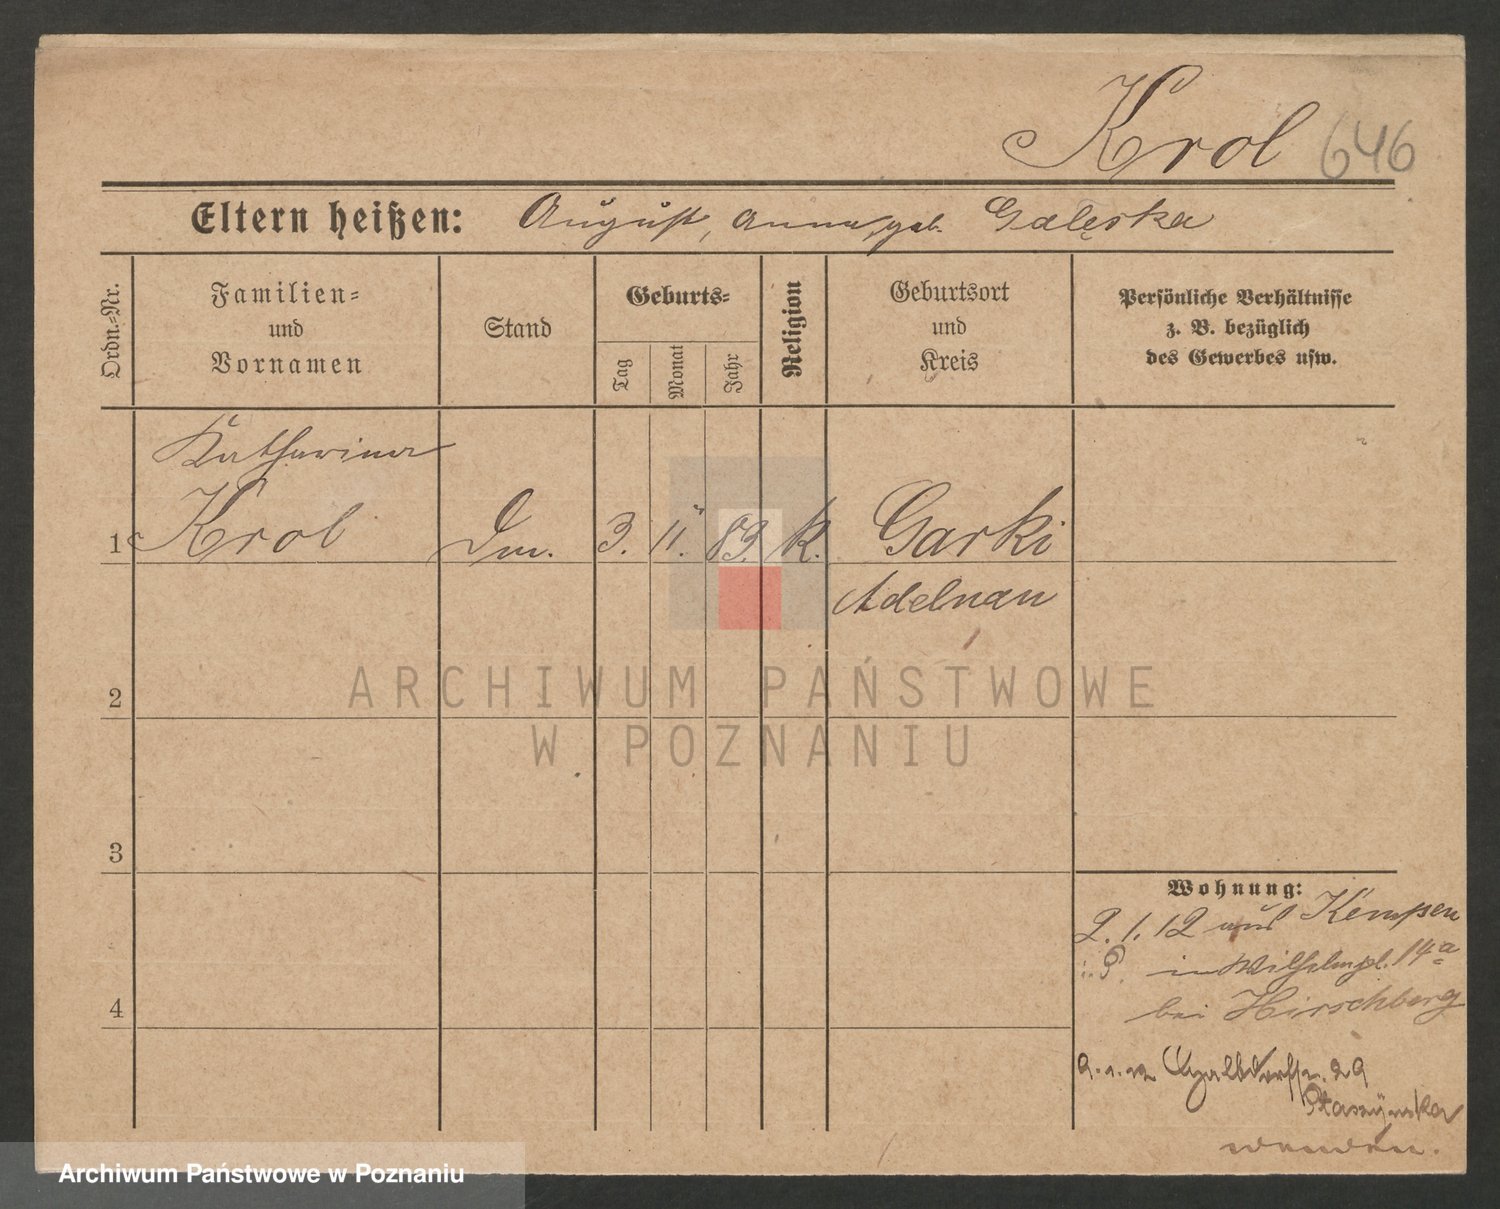 Krol 646
Eltern heißen: August, Anna, geb. Galęska
Ordn.-Nr.
Familien-
und
Vornamen
Stand
Geburts-
Tag
Monat
Jahr
Religion
Geburtsort
und
Kreis
Persönliche Verhältnisse
z. B. bezüglich
des Gewerbes usw.
Katharina
1 Krol Dm. 3. 11. 83. K. Garki
Adelnau
2
3
4
ARCHIWUM PAŃSTWOWE
W POZNANIU
Wohnung:
2. 1. 12 aus Kempen
in P. Wilhelmpl. 14a
bei Hirschberg
29
Staszynska
wenden.
Archiwum Państwowe w Poznaniu